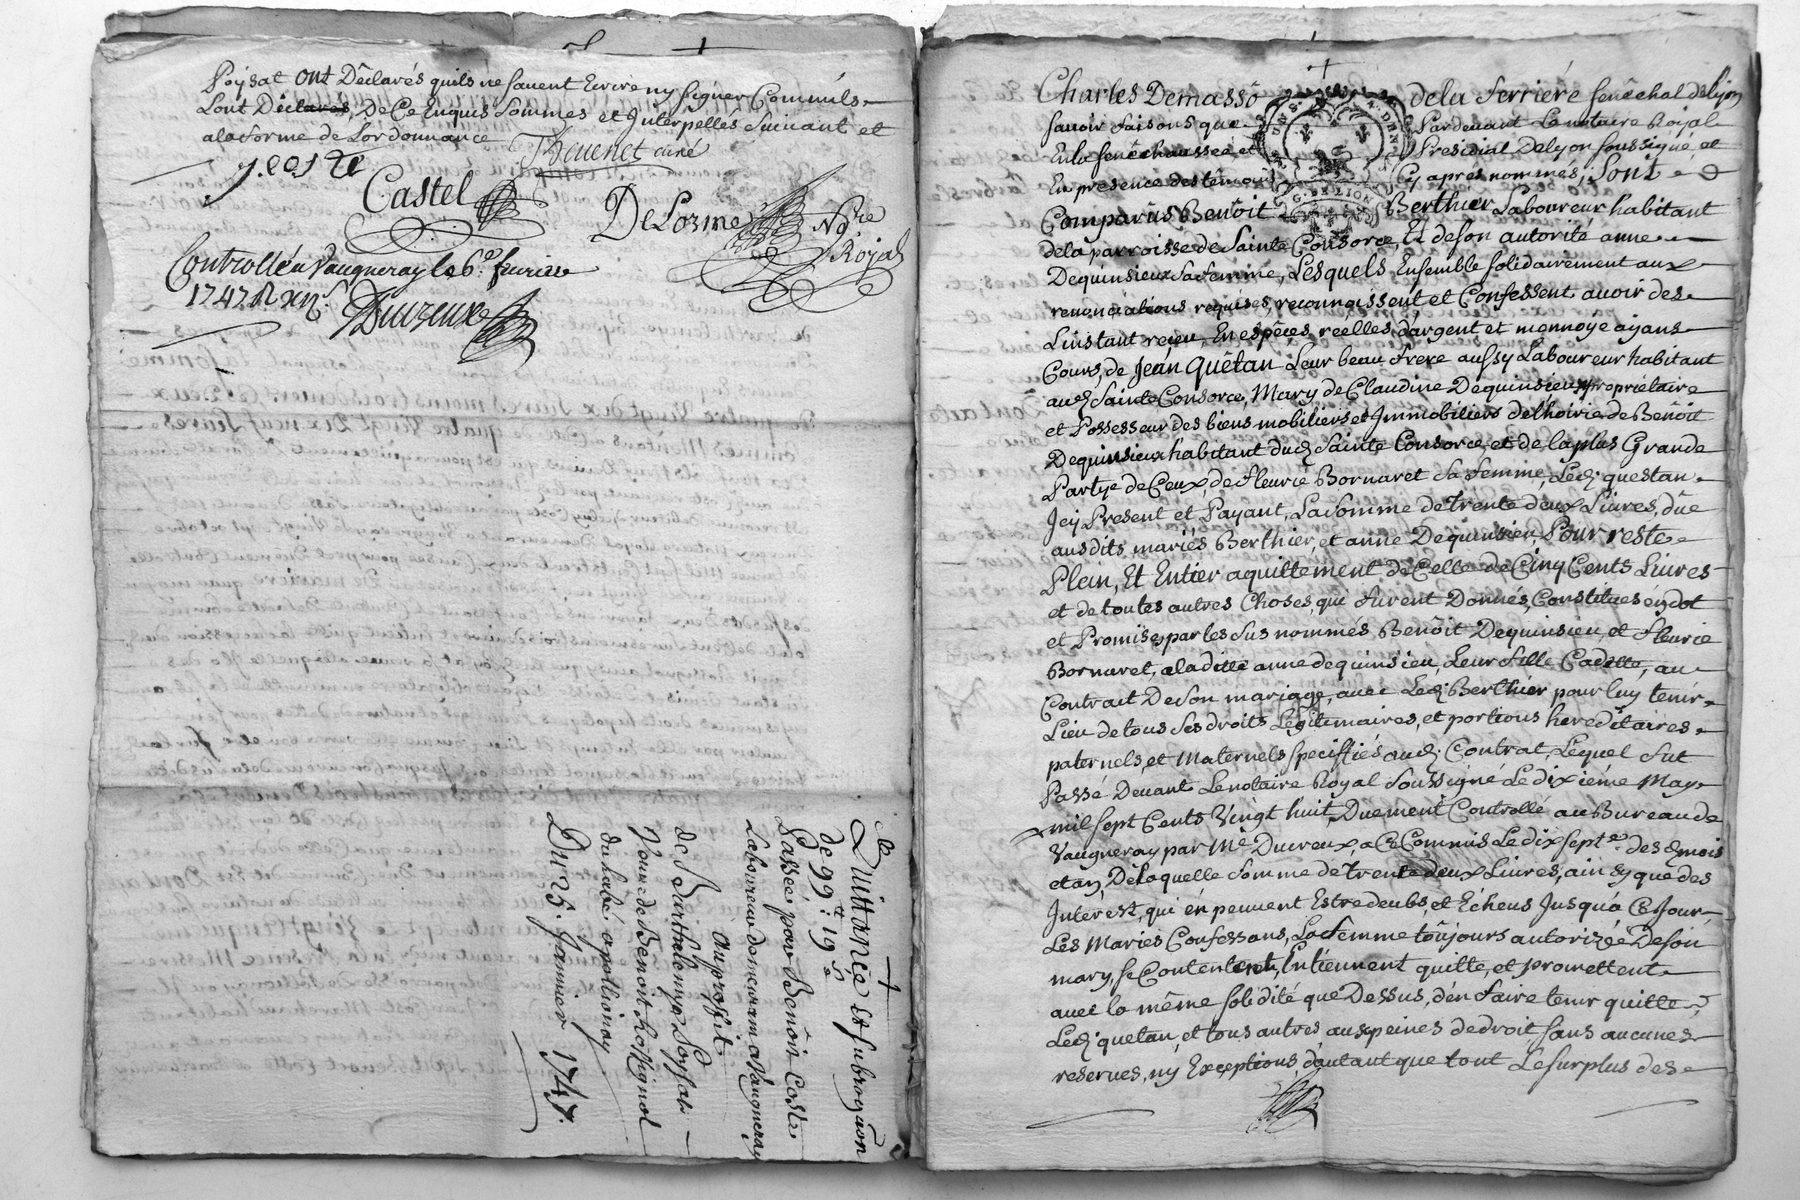 Poysat ont Déclarés quils ne savent Ecrire ny signer Comm'ils
sont Déclarés, De Ce Enquis Sommes et Interpellés Suivant et
ala forme de Lordonnance
Thevenet curé
Castel
DeLorme Nore
Royal
Controllé a Vaugneray le 6e fevrier
1747
Ducreux
Quittance et subrogaôn
de 99tt: 19s
Passée, par Benôit Coste
Laboureur demeurant a Vaugneray
au proffit
de Barthelemye Poysat
Veuve de Benoit
du habé apollionay
Du 25. Janvier 1747.
Charles Demasso dela ferriére senéchal de Lyon
savoir faisons que Pardevant Le notaire Royal
En la senêchaussée et Presidial De Lyon soussigné, et
En presence des têmoins Cy apres nommés; Sont
Comparûs Benôit Berthier Laboureur habitant
dela parroisse de Sainte Consorce, Et de son autorité anne
Dequinsieux sa femme, Lesquels Ensemble solidairement aux
renonciations requises, reconnoissent et Confessent avoir des
Linstant reçeu, En espêces, reelles d'argent et monnoye ayans
Cours, de Jean Quêtan Leur beau frere aussy Laboureur habitant
aud Sainte Consorce, Mary de Claudine Dequinsieux, proprietaire
et Possesseur des biens mobiliers et Immobiliers de l'hoirie de Benôit
Dequinsieux habitant dud Sainte Consorce, et de la plus Grande
Partye de Ceux, de fleurie Bornaret sa femme, Led. questan
Jcy Present et Payant, La somme de trente deux Livres, dûe
ausdits mariés Berthier, et anne Dequinsieu, Pour reste
Plain, Et Entier aquittement de Celle de Cinq Cents Livres
et de toutes autres Choses, qui furent Donnés, Constitües en dot
et Promises par les sus nommés Benôit Dequinsieu, et fleurie
Bornaret, a la ditte anne dequinsieu, Leur fille Cadette, au
Contract De son mariage, avec Led. Berthier pour luy tenir
Lieu de tous ses droits Légitimaires, et portions hereditaires
paternels, et Maternels specifiiés aud. Contrat, Lequel fut
Passé Devant Le notaire Royal soussigné Le dixiéme May
mil sept Cents Vingt huit, Duement Controllé au Bureau de
Vaugneray par Me Ducreux a Ce Commis Le dix septe. desd mois
et an, De Laquelle somme de trente deux Livres, ainsy que des
Interest, qui én peuvent Estre deubs, et Echeus Jusqu'a Ce Jour
Les Maries Confessans, La femme toûjours autorizée De son
mary, se Contentent, Entiennent quitte, et promettent
avec la même solidité que Dessus, d'en faire tenir quitte
Led. quetan, et tous autres aux peines de droit sans aucunes
reserves, ny Exceptions, d'autant que tout Le surplus des